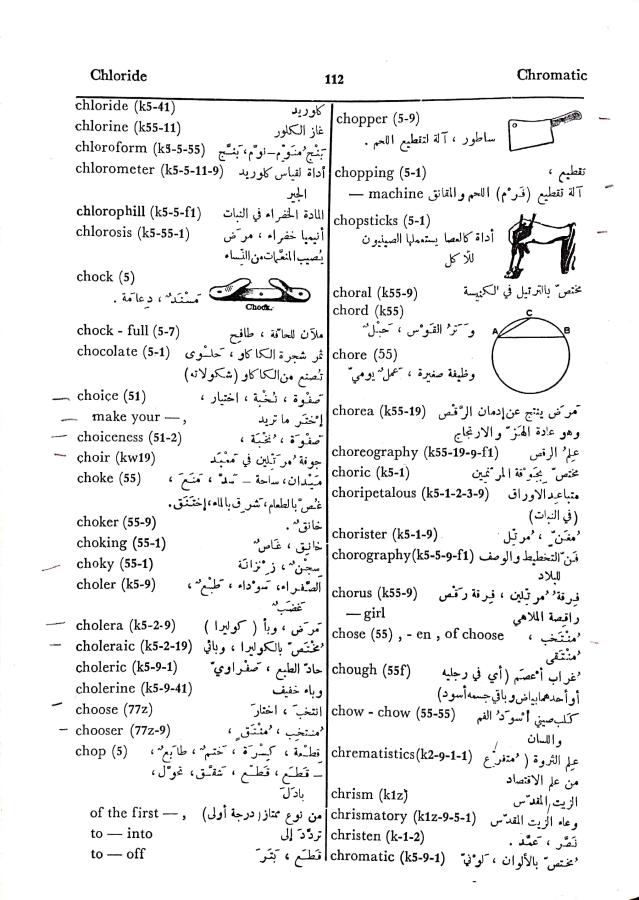 Chloride 112 Chromatic
chloride (k5-41) كلوريد
chlorine (k55-11) غاز الكلور
chloroform (k5-5-55) بَنْج مُنَوِّم – نوّم ، بَنَّج
chlorometer (k5-5-11-9) أداة لقياس كلوريد
الجير
chlorophill (k5-5-f1) المادة الخضراء في النبات
chlorosis (k5-55-1) أنيميا خضراء ، مرَض
يُصيب المنعَّمات من النّساء
chock (5)
مَسْنَدٌ ، دِعامة .
Chock.
chock - full (5-7) ملآن للحافة ، طافِح
chocolate (5-1) ثمر شجرة الكاكاو ، حلوى
تُصنع من الكاكاو (شكولاته)
choice (51) صَفْوة ، نُخْبَة ، اختيار ،
make your —, إخْتَر ما تريد
choiceness (51-2) صفْوَة ، نُخْبَة ،
choir (kw19) جوقة مُرتِّلين في مَعْبَد
choke (55) مَيْدان، ساحة – سَدّ ، مَنَعَ ،
غُصّ بالطعام، شرِق بالماء، إختَنَق.
choker (55-9) خانِقٌ .
choking (55-1) خانِق ، غاصٌّ
choky (55-1) سِجْنٌ ، زِنْزانة
choler (k5-9) الصَّفراء، سَوْداء ، طَبْعٌ ،
غضَبٌ
cholera (k5-2-9) مَرَض ، وبأ ( كوليرا )
choleraic (k5-2-19) مُختصّ بالكوليرا ، وبائي
choleric (k5-9-1) حادّ الطبع ، صَفْراويّ
cholerine (k5-9-41) وباء خفيف
choose (77z) انتخَبَ ، اختارَ
chooser (77z-9) مُنتخِب ، مُنْتَقٍ ،
chop (5) قِطْعة ، كِسْرَة ، ختْمٌ ، طابَعٌ ،
– قَطَعَ ، قَطَّع ، شقَّق، تحوَّل ،
بادَلَ
of the first —, من نوع ممتاز (درجة أولى)
to — into تردَّدَ إلى
to — off قَطَع ، بَتَرَ
chopper (5-9)
ساطور ، آلة لتقطيع اللحم .
chopping (5-1) تقطيع ،
— machine آلة تقطيع (فَرْم) اللحم والمقانق
chopsticks (5-1)
أداة كالعصا يستعملها الصينيون
للأكل
choral (k55-9) مختصّ بالترتيل في الكنيسة
chord (k55)
وَتَرُ القوْس ، حَبْلٌ
C
A B
chore (55)
وظيفة صغيرة ، عمَلٌ يوميّ
chorea (k55-19) مَرَض ينتج عن إدمان الرَّقْص
وهو عادة الهَزّ والارتجاج
choreography (k55-19-9-f1) عِلمُ الرقص
choric (k5-1) مختصّ بجَوقة المرنّمين
choripetalous (k5-1-2-3-9) متباعد الاوراق
(في النبات)
chorister (k5-1-9) مُغَنٍّ ، مُرتِّل
chorography(k5-5-9-f1) فَنّ التخطيط والوصف
للبلاد
chorus (k55-9) فِرقة مُرتّلين ، فِرقة رَقْص
— girl راقصة الملاهي
chose (55) , - en , of choose مُنْتَخَب ،
مُنْتَقى
chough (55f) غُراب أعْصَم (أي في رجليه
أو أحدهما بياض وباقي جسمه أسود)
chow - chow (55-55) كلب صيني أسوَدُ الفم
واللسان
chrematistics(k2-9-1-1) عِلم الثروة ( مُتفرِّع
من علم الاقتصاد
chrism (k1z) الزيت المقدّس
chrismatory (k1z-9-5-1) وعاء الزيت المقدّس
christen (k-1-2) نَصَّر ، عمَّد .
chromatic (k5-9-1) مُختصّ بالألوان ، لَونيّ